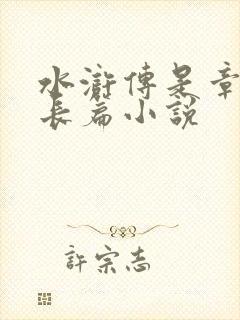 水滸傳是章
長篇小說
許宗志